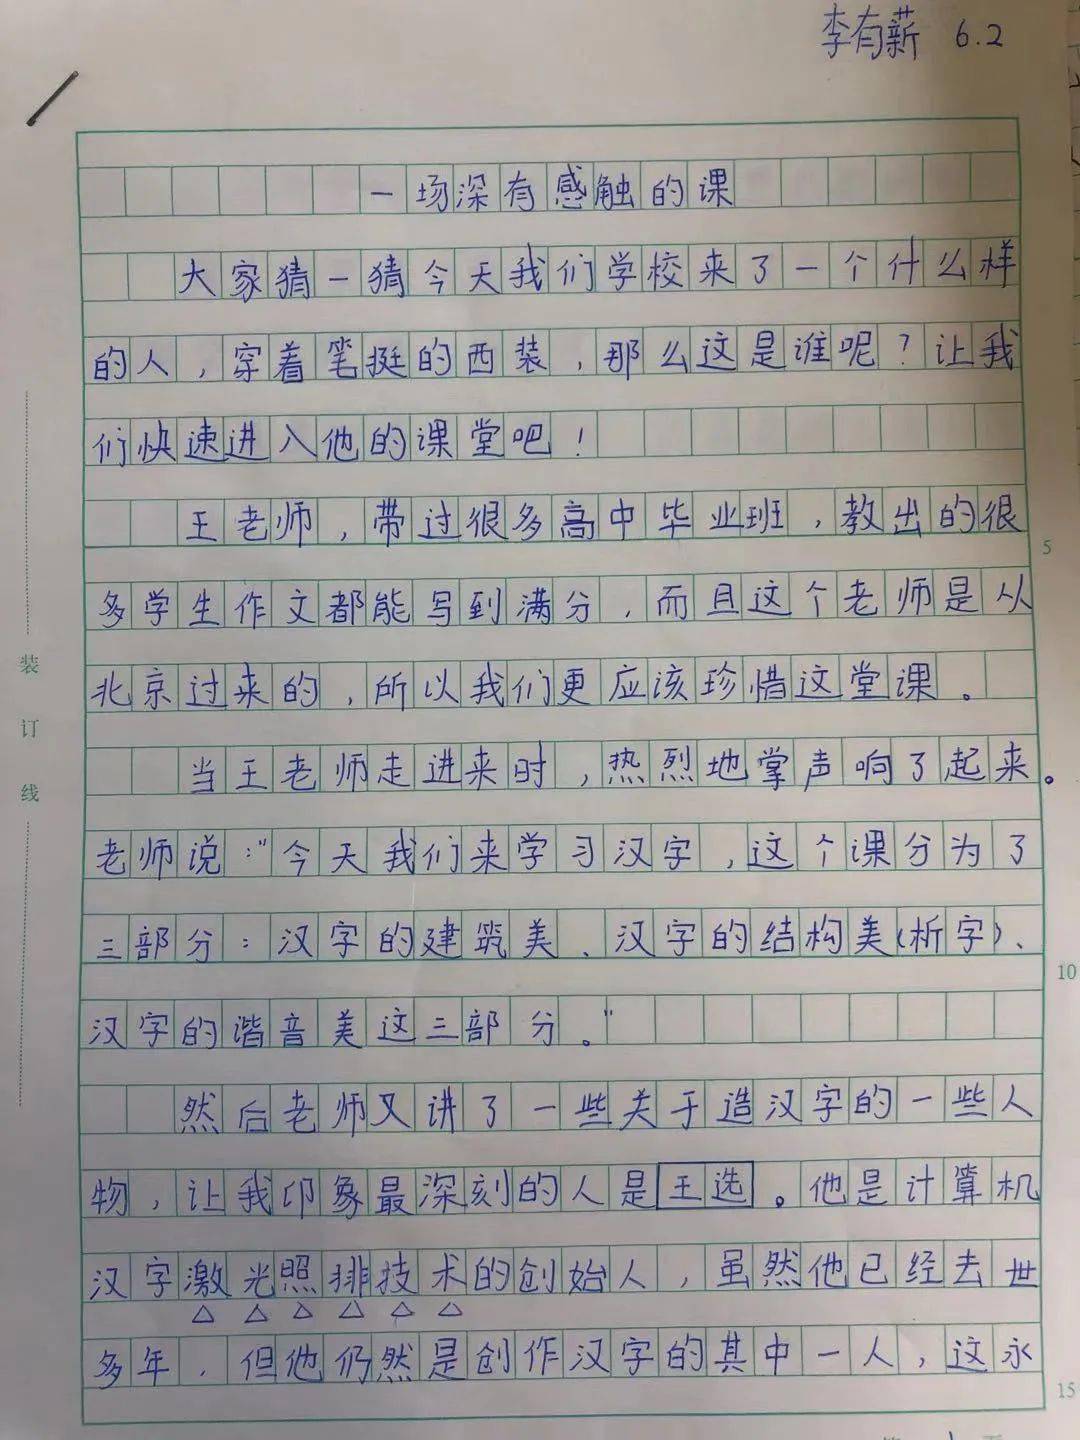 李有薪 6.2
一场深有感触的课
大家猜一猜今天我们学校来了一个什么样
的人，穿着笔挺的西装，那么这是谁呢？让我
们快速进入他的课堂吧！
王老师，带过很多高中毕业班，教出的很
5
多学生作文都能写到满分，而且这个老师是从
北京过来的，所以我们更应该珍惜这堂课。
当王老师走进来时，热烈地掌声响了起来。
老师说："今天我们来学习汉字，这个课分为了
三部分：汉字的建筑美、汉字的结构美(析字)、
10
汉字的谐音美这三部分。"
然后老师又讲了一些关于造汉字的一些人
物，让我印象最深刻的人是王选。他是计算机
汉字激光照排技术的创始人，虽然他已经去世
多年，但他仍然是创作汉字的其中一人，这永
15
装订线